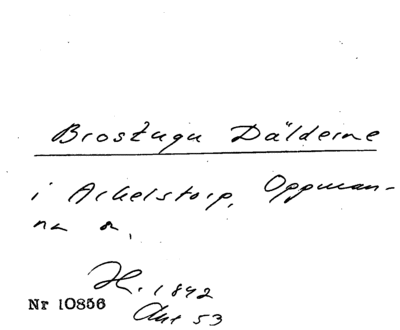 Brostugu Dälderne
i Arkelstorp, Oppman-
na s.
H. 1842
Nr 10856
53